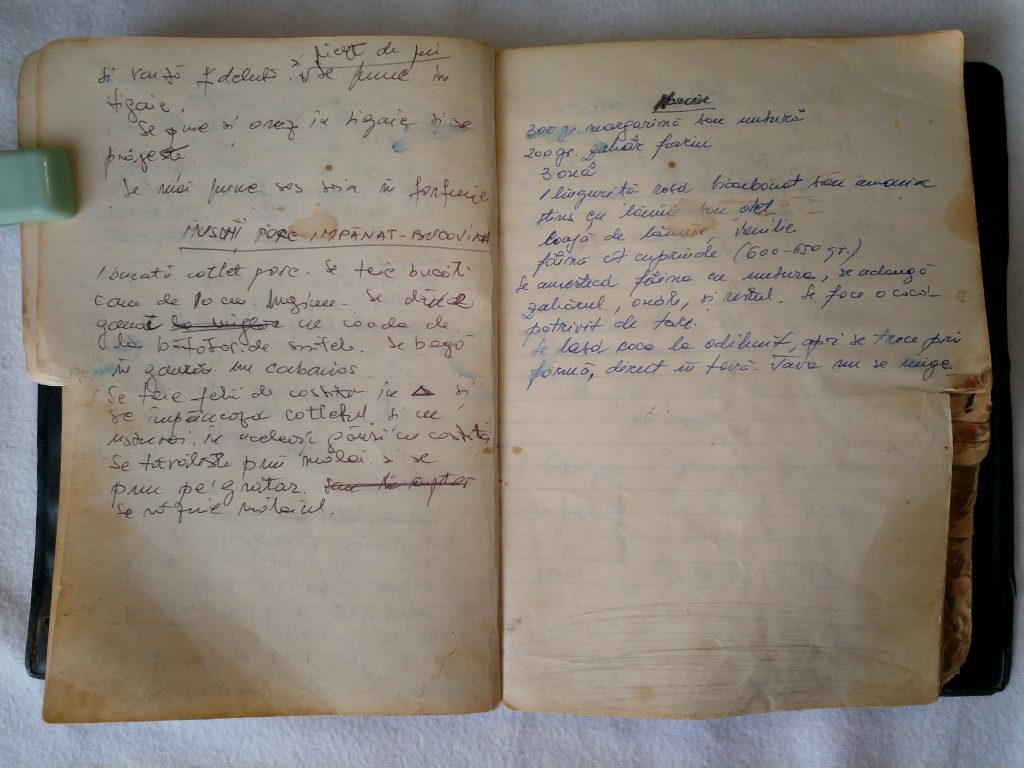 și piept de pui
și varză f. se pune în
tigaie.
Se pune și orez în tigaie și se
prăjește.
Se mai pune sos soia în farfurie.
MUSCHI PORC IMPĂNAT-BUCOVINA
1 bucată cotlet porc. Se taie bucăți
cam de 10 cm lungime. Se dă
gaură cu coada de
la bătător de șnițele. Se bagă
în gaură un cabanos.
Se taie felii de costiță în Δ și
se împănează cotletul și cu
usturoi în aceleași găuri cu costița,
Se tăvălește prin mălai și se
pune pe grătar. sau la cuptor
Se mălaiul.
300 gr. margarină sau untură
200 gr. zahăr farin
3 ouă
1 linguriță rasă bicarbonat sau amoniac
stins cu lămîie sau oțet
Coajă de lămîie, vanilie
făină cît cuprinde. (600-650 gr.)
Se amestecă făina cu untura, se adaugă
zahărul, ouăle, și restul. Se face o cocă
potrivit de tare.
Se lasă coca la odihnit, apoi se trece prin
formă, direct în tavă. Tava nu se unge